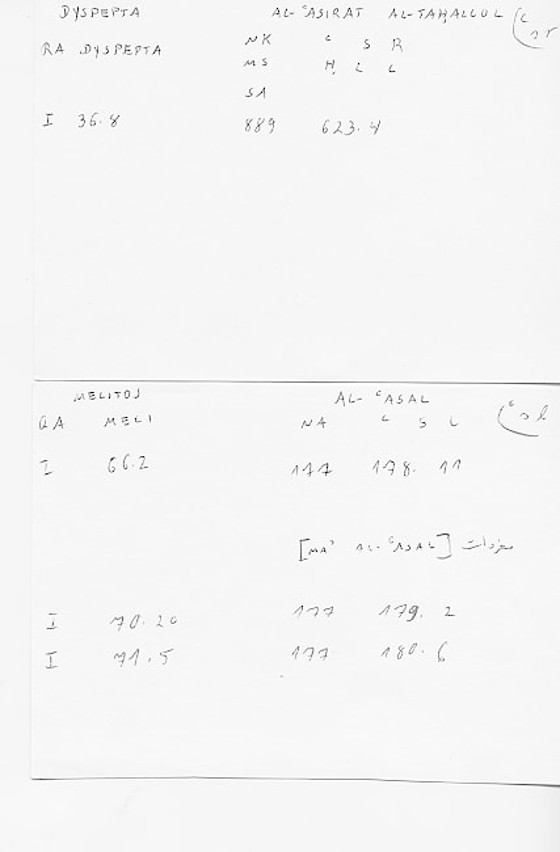 DYSPEPTA AL-ʿASIRAT AL-TAḤALLUL
RA DYSPEPTA NK ʿ S R
MS Ḥ L L
SA
I 36.8 889 623.4
MELITOS AL-ʿASAL
QA MELI NA ʿ S L
I 66.2 177 178. 11
[MAʾ AL-ʿASAL]
I 70.20 177 179. 2
I 71.5 177 180. 6